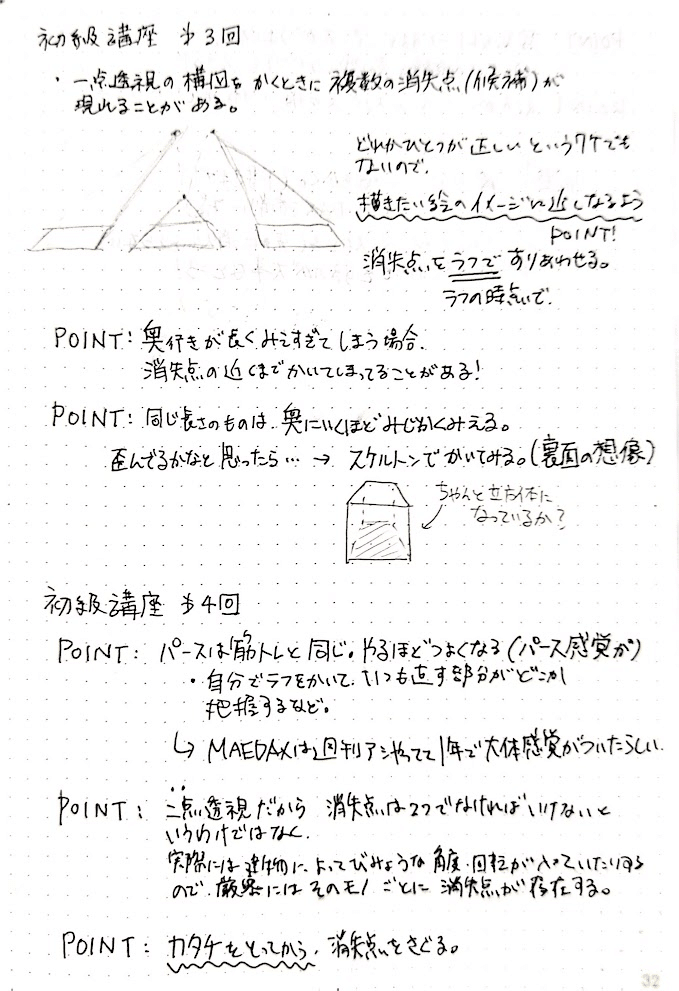 初級講座 #3回
・一点透視の構図をかくときに複数の消失点(候補)が
現れることがある。
どれかひとつが正しいというワケでも
ないので、
描きたい絵のイメージに近しなるよう
POINT!
消失点をラフですりあわせる。
ラフの時点で。
POINT: 奥行きが長くみえすぎてしまう場合、
消失点の近くまでかいてしまってることがある!
POINT: 同じ長さのものは、奥にいくほどみじかくみえる。
歪んでるかなと思ったら… → スケルトンでかいてみる。(裏面の想像)
ちゃんと立方体に
なっているか?
初級講座 #4回
POINT: パースは筋トレと同じ。やるほどつよくなる(パース感覚が)
・自分でラフをかいて、いつも直す部分がどこか
把握するなど。
↳ MAEDAXは週刊アシやってて1年で大体感覚がついたらしい。
POINT: 二点透視だから消失点は2つでなければいけないと
いうわけではなく、
実際には建物によってびみょうな角度・回転が入っていたりする
ので、厳密にはそのモノごとに消失点が存在する。
POINT: カタチをとってから、消失点をさぐる。
32